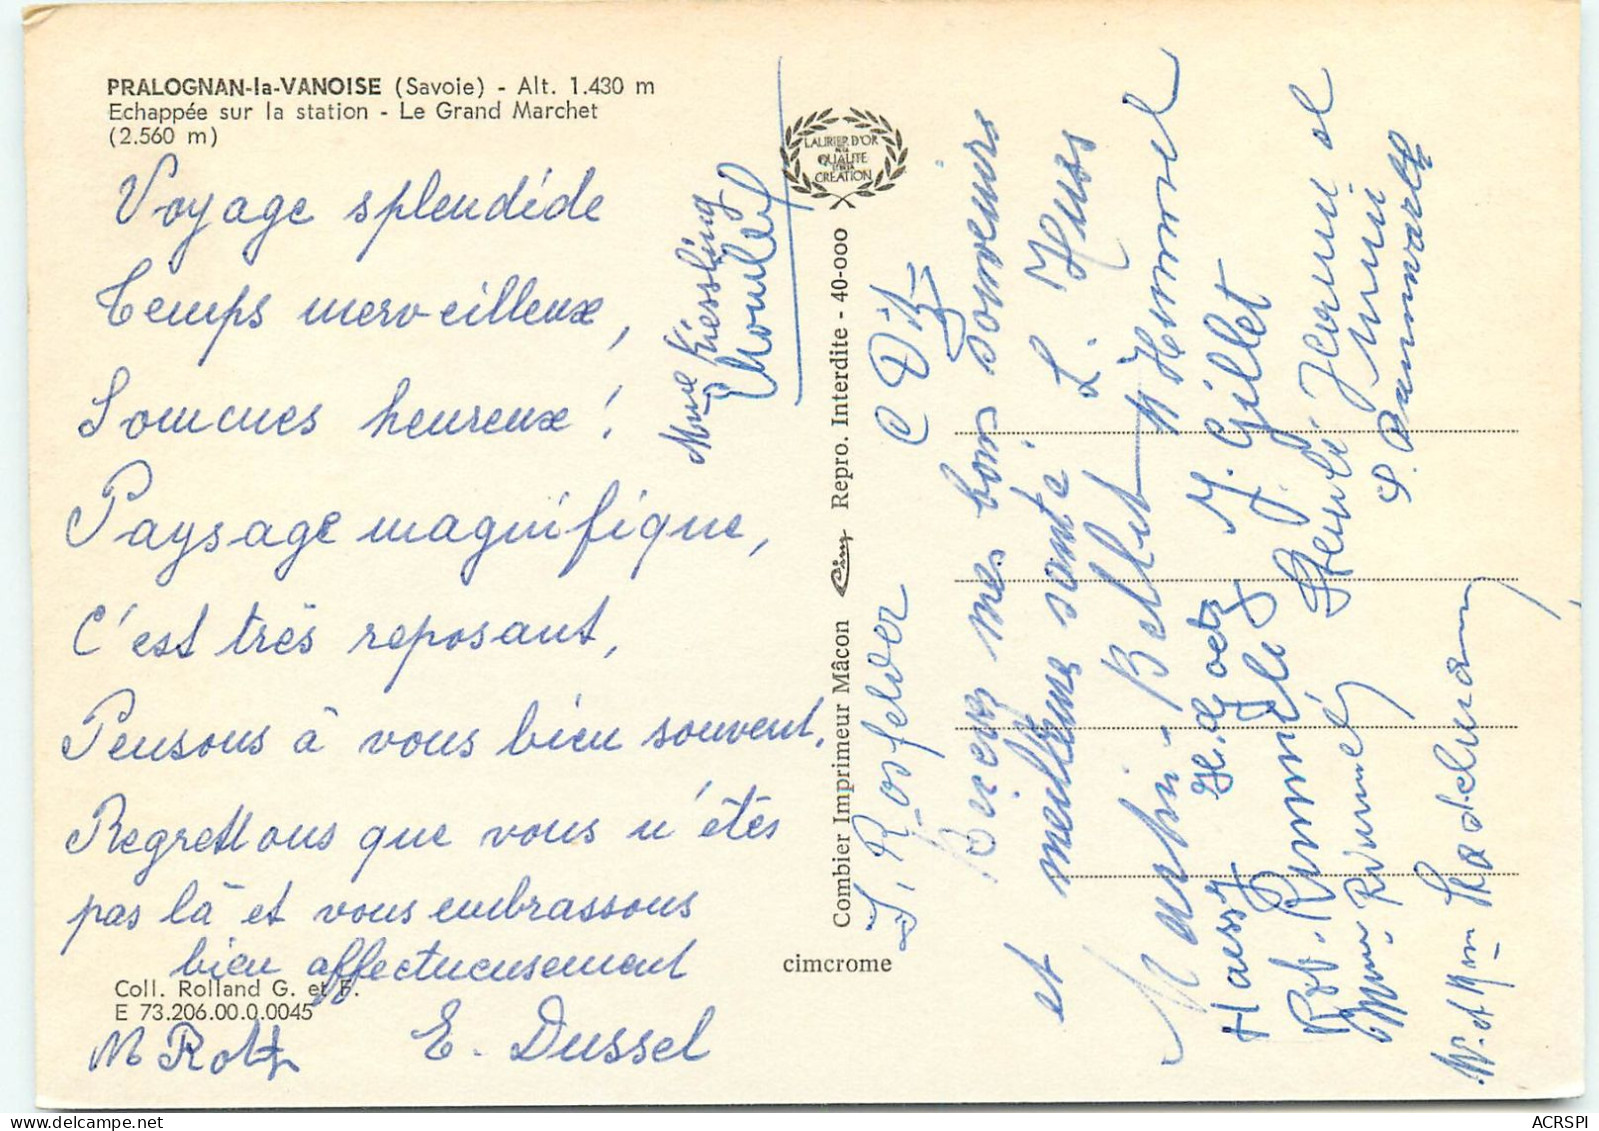 PRALOGNAN-la-VANOISE (Savoie) - Alt. 1.430 m
Echappée sur la station - Le Grand Marchet
(2.560 m)
Voyage splendide
Temps merveilleux,
Sommes heureux !
Paysage magnifique,
C'est très reposant,
Pensons à vous bien souvent,
Regrettons que vous n'étés
pas là et vous embrassons
bien affectueusement
Coll. Rolland G. et F.
E 73.206.00.0.0045
M Roth
E. Dussel
Mme Kiessling
LAURIER D'OR
DE LA
QUALITE
CREATION
Combier Imprimeur Mâcon Cim Repro. Interdite - 40-000
cimcrome
J. Rosfelder
mes bons souvenirs
et meilleure santé L. Huss
Martin - Belbet
M Hummel
Haessig
M. Gillet
Rob. Rimmelé
Mme Rimmelé
M. et Mme Stadelmann
ACRSPI